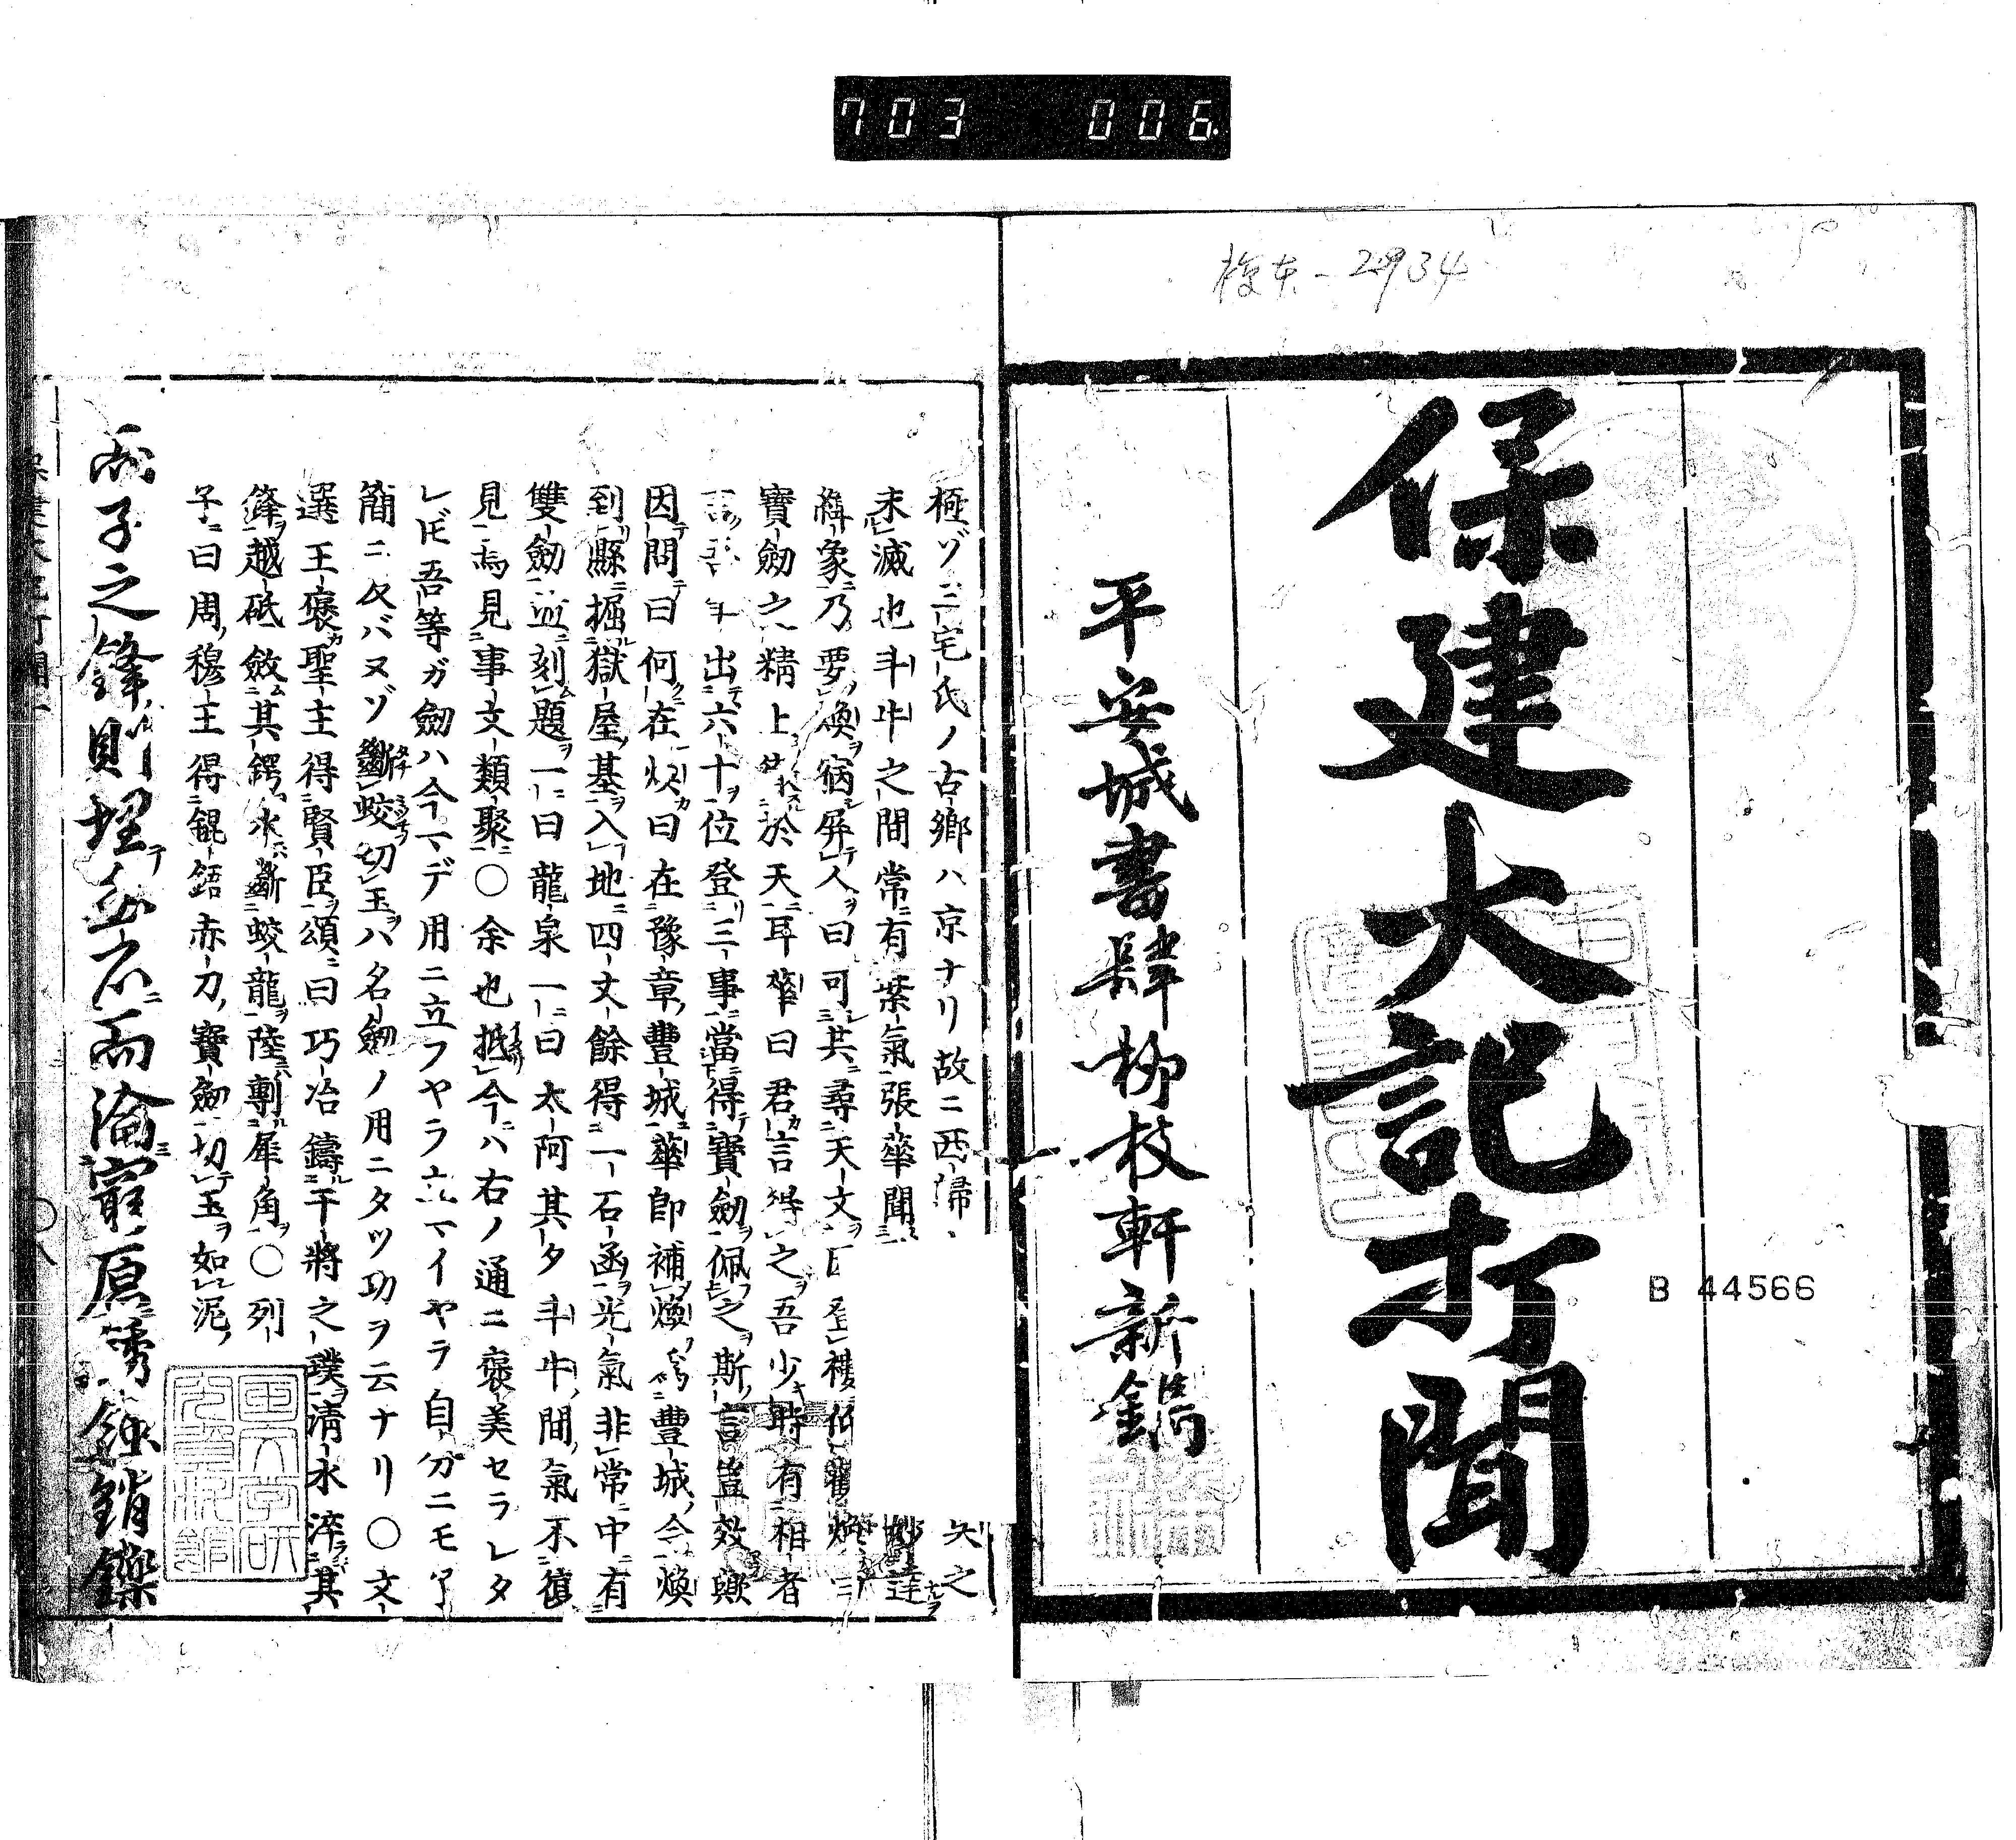 703 006
複本-2934
保建大記打聞
平安城書肆柳枝軒新鐫
B 44566
極ゾ三宅氏ノ古郷ハ京ナリ故ニ西帰
矢之
末滅也斗牛之間常有紫氣張華聞
妙達
緯象乃要煥宿屏人曰可共尋天文
寶劔之精上於天耳華曰君言得之吾少時有相者
出六十位登三事當得寶劔佩之斯言豈效歟
因問曰何在煥曰在豫章豐城華即補煥為豐城令煥
到縣掘獄屋基入地四丈餘得一石函光氣非常中有
雙劔並刻題一曰龍泉一曰太阿其夕斗牛間氣不復
見焉見事文類聚○余也抵今ハ右ノ通ニ褒美セラレタ
レドモ吾等ガ劔ハ今マデ用ニ立フヤラ立マイヤラ自分ニモ了
簡ニ及バヌゾ斷蛟切玉ハ名劔ノ用ニタツ功ヲ云ナリ○文
選王褒聖主得賢臣頌曰巧冶鑄干將之璞清水淬其
鋒越砥斂其鍔水斷蛟龍陸剸犀角○列
子曰周穆王得錕鋙赤刀寶劔切玉如泥
而予之鋒則埋血石而淪窮原銹蝕銷鑠